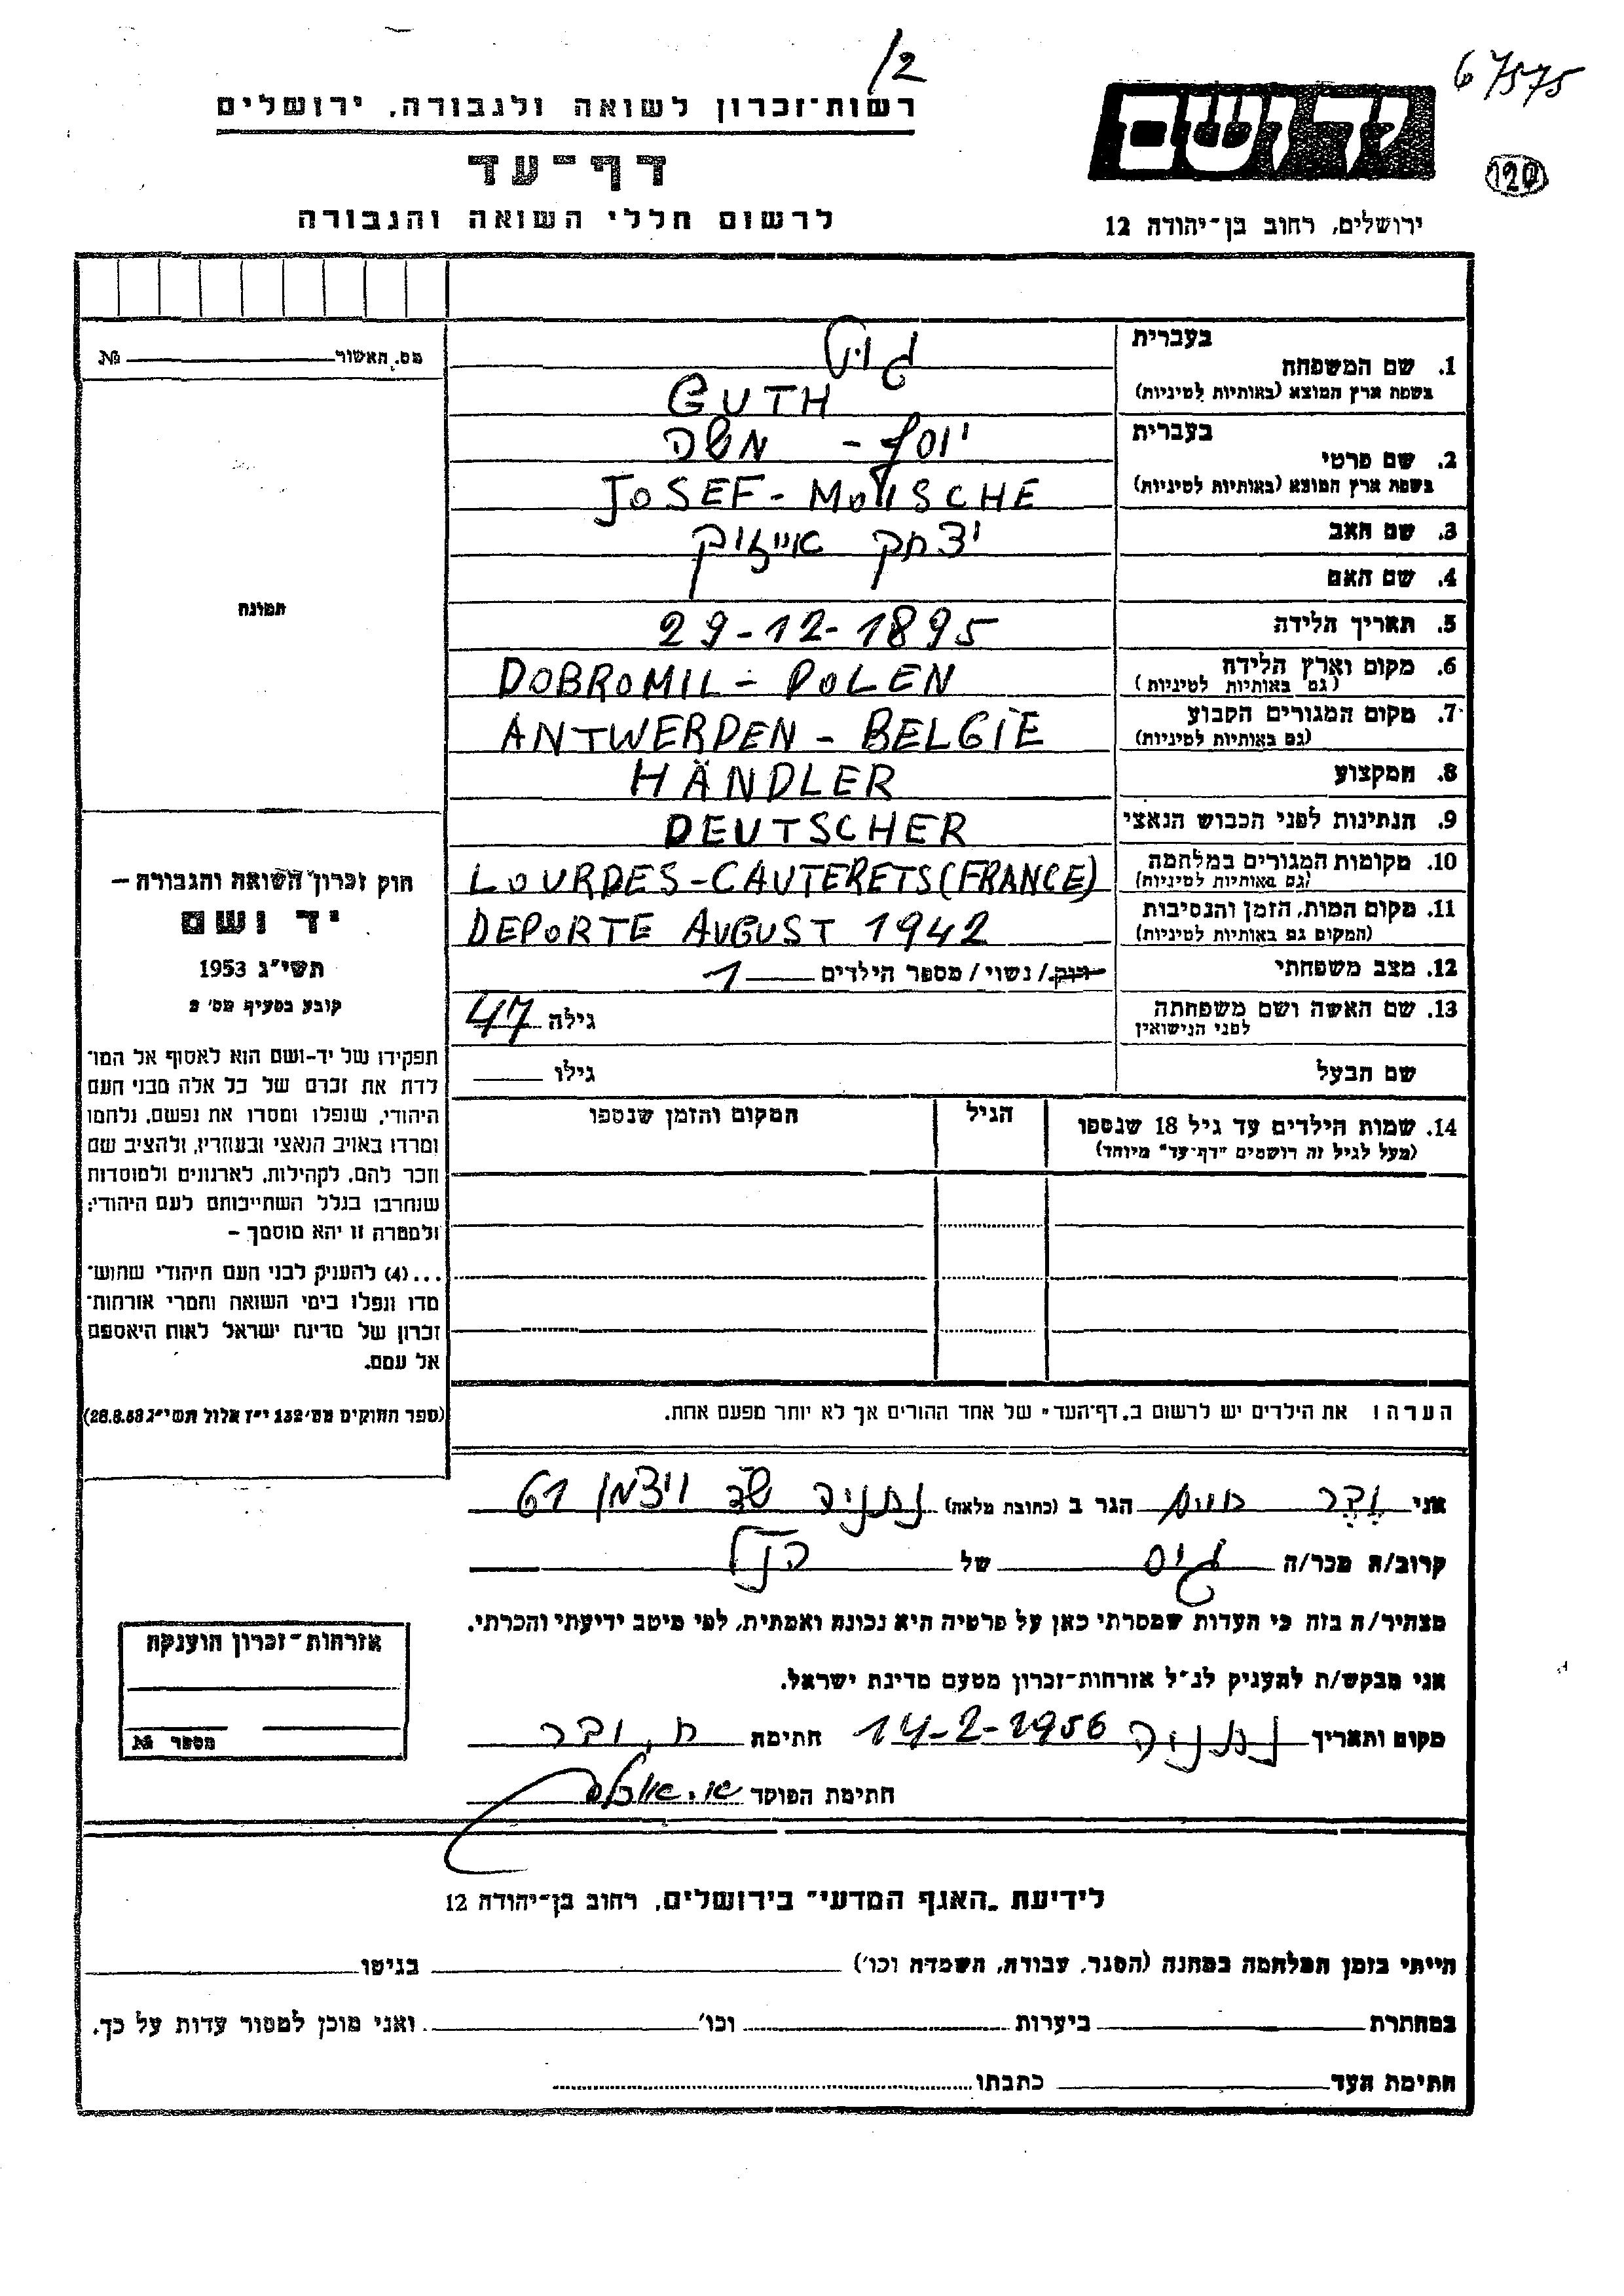 /2
67575
120
רשות־זכרון לשואה ולגבורה, ירושלים
דף־עד
לרשום חללי השואה והגבורה
יד ושם
ירושלים, רחוב בן־יהודה 12
מס. האשור № 
תמונה
חוק זכרון השואה והגבורה –
יד ושם
תשי״ג 1953
קובע בסעיף מס׳ 2
תפקידו של יד-ושם הוא לאסוף אל המו־
לדת את זכרם של כל אלה מבני העם
היהודי, שנפלו ומסרו את נפשם, נלחמו
ומרדו באויב הנאצי ובעוזריו, ולהציב שם
וזכר להם, לקהילות, לארגונים ולמוסדות
שנחרבו בגלל השתייכותם לעם היהודי;
ולמטרה זו יהא מוסמך –
...(4) להעניק לבני העם היהודי שהוש־
מדו ונפלו בימי השואה והמרי אזרחות־
זכרון של מדינת ישראל לאות היאספם
אל עמם.
(ספר החוקים מס׳ 132 י״ז אלול תשי״ג 28.8.53)
בעברית
1. שם המשפחה
בשפת ארץ המוצא (באותיות לטיניות) GUTH
בעברית יוסף - משה
2. שם פרטי
בשפת ארץ המוצא (באותיות לטיניות) JOSEF - MOÏSCHE
3. שם האב יצחק אייזיק
4. שם האם
5. תאריך הלידה 29-12-1895
6. מקום וארץ הלידה DOBROMIL - POLEN
(גם באותיות לטיניות)
7. מקום המגורים הקבוע ANTWERPEN - BELGIE
(גם באותיות לטיניות)
8. המקצוע HÄNDLER
9. הנתינות לפני הכבוש הנאצי DEUTSCHER
10. מקומות המגורים במלחמה LOURDES - CAUTERETS (FRANCE)
(גם באותיות לטיניות)
11. מקום המות, הזמן והנסיבות DEPORTE AUGUST 1942
(המקום גם באותיות לטיניות)
12. מצב משפחתי רווק / נשוי / מספר הילדים 1
13. שם האשה ושם משפחתה גילה 47
לפני הנישואין
שם הבעל גילו
14. שמות הילדים עד גיל 18 שנספו הגיל המקום והזמן שנספו
(מעל לגיל זה רושמים "דף-עד" מיוחד)
הערה: את הילדים יש לרשום ב„דף־העד״ של אחד ההורים אך לא יותר מפעם אחת.
אני ובר חיים הגר ב (כתובת מלאה) נתניה שד ויצמן 61
קרוב/ה מכר/ה גיס של הנ״ל
מצהיר/ה בזה כי העדות שמסרתי כאן על פרטיה היא נכונה ואמתית, לפי מיטב ידיעתי והכרתי.
אני מבקש/ת להעניק לנ״ל אזרחות־זכרון מטעם מדינת ישראל.
מקום ותאריך נתניה 14-2-1956 חתימה ח. ובר
חתימת הפוקד
אזרחות־זכרון הוענקה
מספר №
לידיעת „האגף המדעי״ בירושלים, רחוב בן־יהודה 12
הייתי בזמן המלחמה במחנה (הסגר, עבודה, השמדה וכו׳) בגיטו
במחתרת ביערות וכו׳ ואני מוכן למסור עדות על כך.
חתימת העד כתבתו